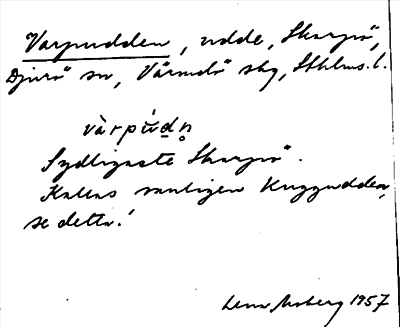 Varpudden, udde, Skarpö,
Djurö sn, Värmdö skg, Sthlms l.
vàrpúdn̥
Sydligaste Skarpö.
Kallas vanligen Kuggudden,
se detta!
Lena Moberg 1957